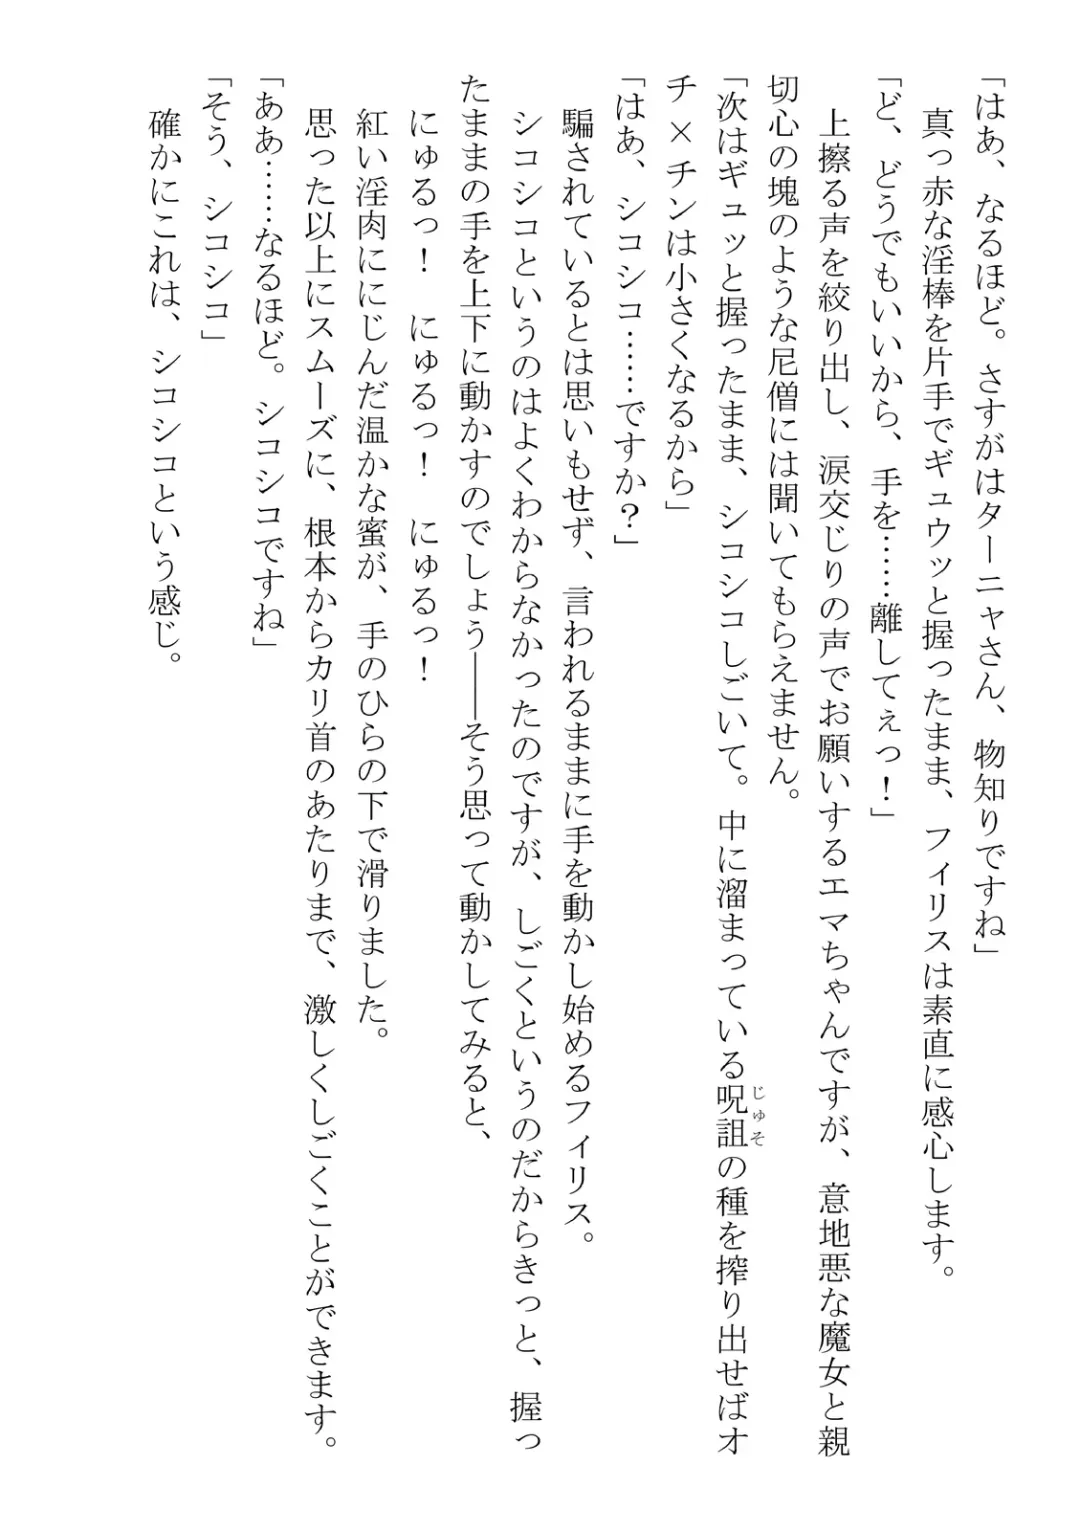 「はあ、なるほど。さすがはターニャさん、物知りですね」
真っ赤な淫棒を片手でギュウッと握ったまま、フィリスは素直に感心します。
「ど、どうでもいいから、手を……離してぇっ！」
上擦る声を絞り出し、涙交じりの声でお願いするエマちゃんですが、意地悪な魔女と親
切心の塊のような尼僧には聞いてもらえません。
「次はギュッと握ったまま、シコシコしごいて。中に溜まっている呪詛じゅその種を搾り出せばオ
チ×チンは小さくなるから」
「はあ、シコシコ……ですか？」
騙されているとは思いもせず、言われるままに手を動かし始めるフィリス。
シコシコというのはよくわからなかったのですが、しごくというのだからきっと、握っ
たままの手を上下に動かすのでしょう――そう思って動かしてみると、
にゅるっ！　にゅるっ！　にゅるっ！
紅い淫肉ににじんだ温かな蜜が、手のひらの下で滑りました。
思った以上にスムーズに、根本からカリ首のあたりまで、激しくしごくことができます。
「ああ……なるほど。シコシコですね」
「そう、シコシコ」
確かにこれは、シコシコという感じ。